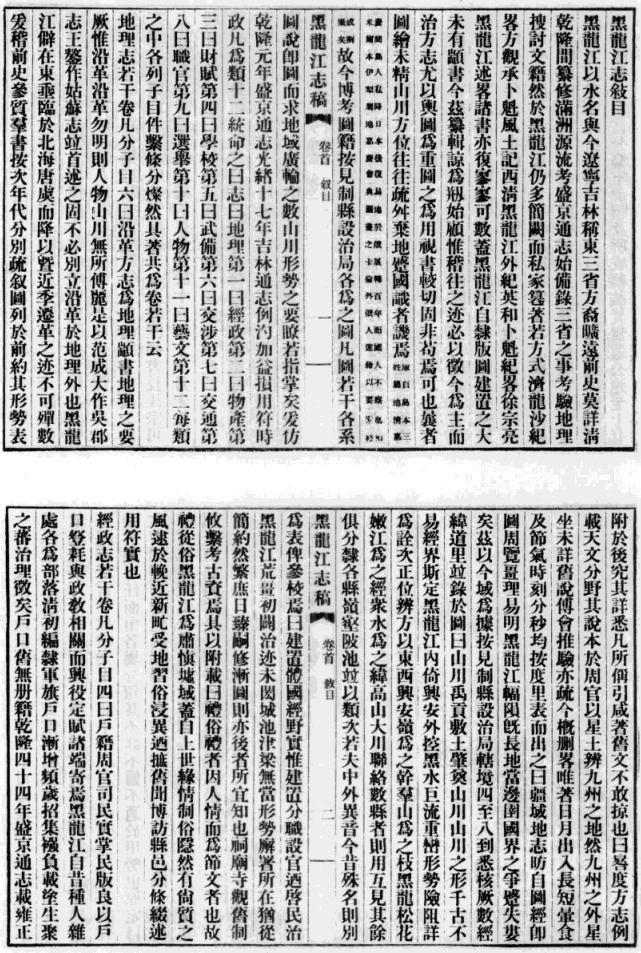 黑龍江志敍目
黑龍江以水名與今遼寧吉林稱東三省方裔曠遠前史莫詳清
乾隆間纂修滿洲源流考盛京通志始備錄三省之事考驗地理
搜討文籍然於黑龍江仍多簡闕而私家簒著若方式濟龍沙紀
畧方觀承卜魁風土記西清黑龍江外紀英和卜魁紀畧徐宗亮
黑龍江述畧諸書亦復寥寥可數蓋黑龍江自隸版圖建置之大
未有顓書今茲纂輯諒為剏始顧惟稽往之迹必以徵今為主而
治方志尤以輿圖為重圖之為用視書較切固非苟焉可也曩者
圖繪未精山川方位往往疏舛棄地蹙國識者譏焉庫自島本三姓屬地清嘉
慶間島人私降日本後復易地於俄展轉百年而國人不察也
米爾本伊犂屬地嘉慶會典圖畫之卡倫外俄人遂以要
故今博考圖籍按見制縣設治局各為之圖凡圖若干各系
黑龍江志稿 卷首 敍目 一
圖說卽圖而求地域廣輪之數山川形勢之要瞭若指掌矣爰仿
乾隆元年盛京通志光緒十七年吉林通志例汋加益損用符時
政凡為類十二統命之曰志曰地理第一曰經政第二曰物產第
三曰財賦第四曰學校第五曰武備第六曰交涉第七曰交通第
八曰職官第九曰選舉第十曰人物第十一曰藝文第十二每類
之中各列子目件繫條分燦然具著共為卷若干云
地理志若干卷凡分子目六曰沿革方志為地理顓書地理之要
厥惟沿革沿革勿明則人物山川無所傅麗是以范成大作吳郡
志王鏊作姑蘇志竝首述之固不必別立沿革於地理外也黑龍
江僻在東垂臨於北海唐虞而降以曁近季遷革之迹不可殫數
爰稽前史參質羣書按次年代分別疏敘圖列於前約其形勢表
附於後究其詳悉凡所偁引咸著舊文不敢掠也曰晷度方志例
載天文分野其說本於周官以星土辨九州之地然九州之外星
坐未詳舊說傅會推驗亦疏今概刪畧唯著日月出入長短暈食
及節氣時刻分秒均按度里表而出之曰疆域地志昉自圖經卽
圖周覽畺理易明黑龍江幅隕旣長地當邊圉國界之爭蹙失婁
矣茲以今域為據按見制縣設治局轄境四至八到悉核厥數經
緯道里竝錄於圖曰山川禹貢敷土肇奠山川山川之形千古不
易經界斯定黑龍江內倚興安外控黑水巨流重巒形勢險阻詳
為詮次正位辨方以東西興安嶺為之幹羣山為之枝黑龍松花
嫩江為之經衆水為之緯高山大川聯絡數縣者則用互見其餘
俱分隸各縣嶺壑陂池竝以類次若夫中外異音今昔殊名則別
黑龍江志稿 卷首 敍目 二
為表俾參校焉曰建置體國經野實惟建置分職設官迺啓民治
黑龍江荒畺初闢治迹未閎城池津梁無當形勢廨署所在猶從
簡約然繁庶日臻嗣修漸圖則亦後者所宜知也祠廟寺觀舊制
攸繫考古資焉其以附載曰禮俗禮者因人情而為節文者也故
禮從俗黑龍江為肅慎墟域蓋自上世緣情制俗隱然有尙質之
風逮於輓近新甿受地習俗浸異迺摭舊聞博訪縣邑分條綴述
用符實也
經政志若干卷凡分子目四曰戶籍周官司民實掌民版良以戶
口登耗與政敎相關而興役定賦諸端寄焉黑龍江自昔種人雜
處各為部落清初編隸軍旗戶口漸增頻歲招集襁負載塗生聚
之蕃治理徵矣戶口舊無册籍乾隆四十四年盛京通志載雍正